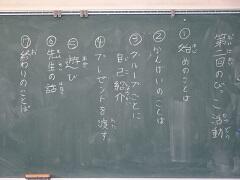 第二回のびっこ活動
①始めのことば
②かんけいのことば
③グループごとに
自己紹介
④プレゼントを渡す
⑤遊び
⑥先生の話
⑦終わりのことば